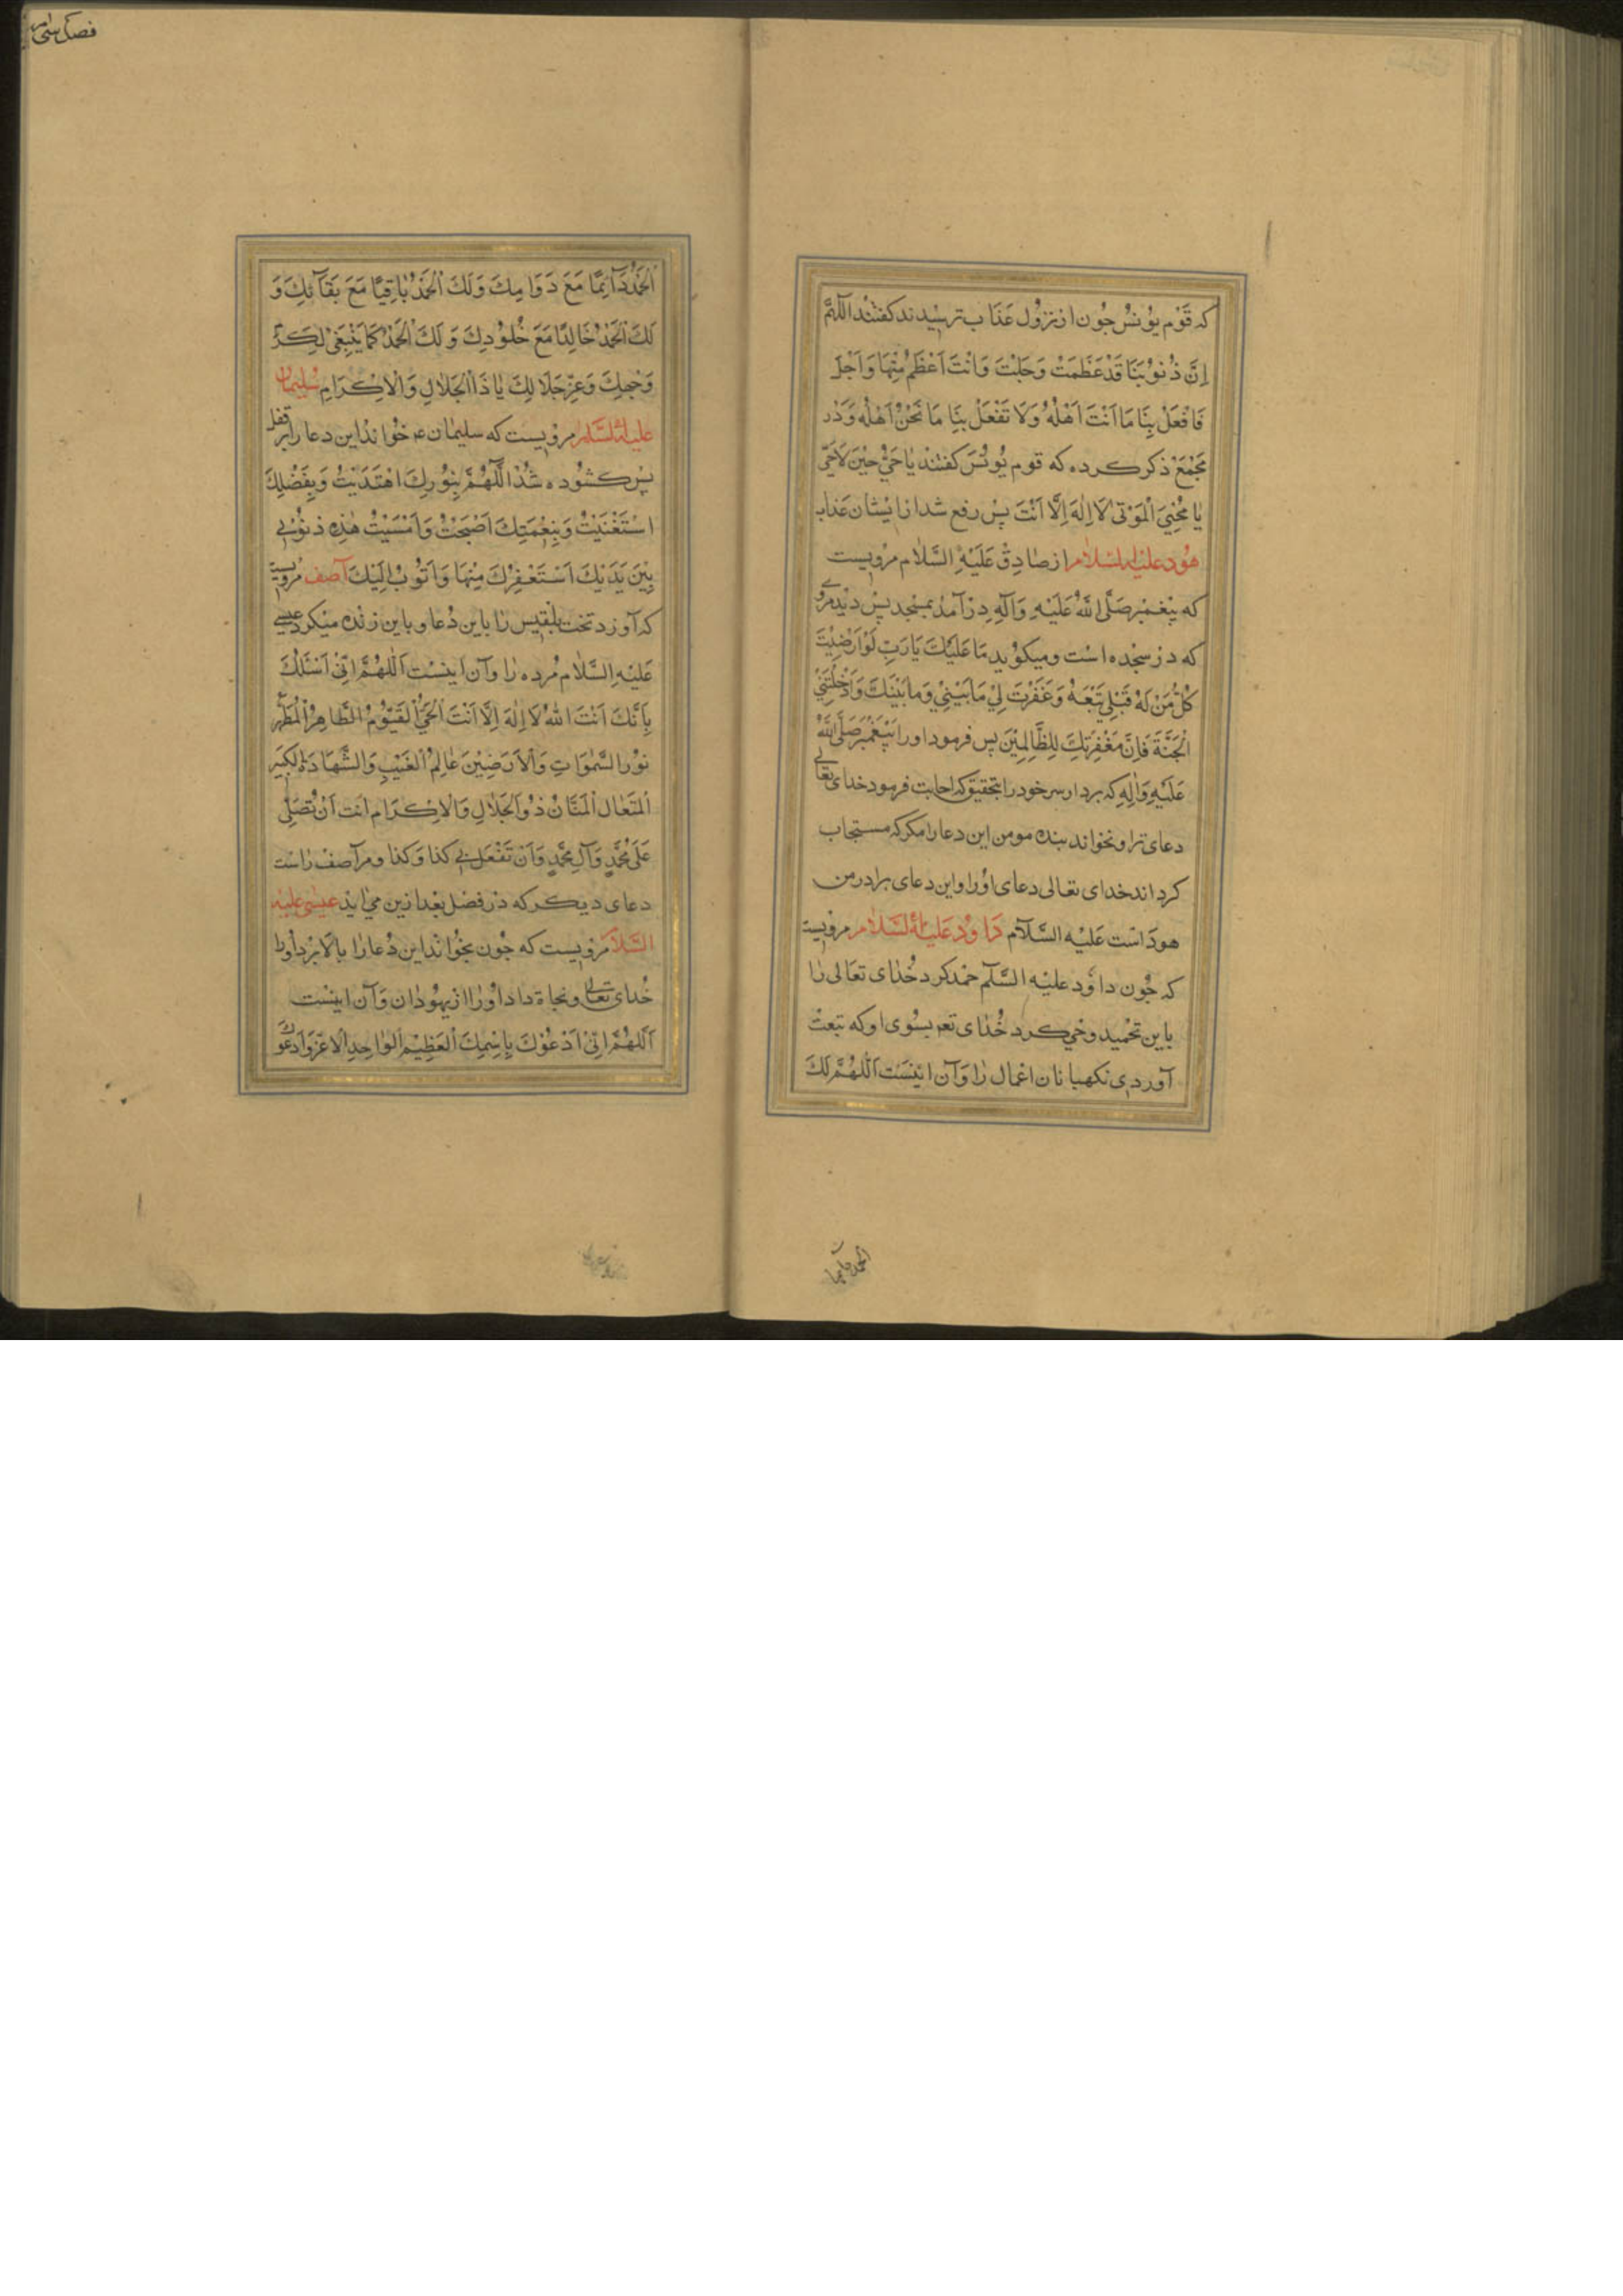 که قَوْم یوُنسُ چُون از نزُول عَذاب ترسیْدند کفتند اَللّهُمَّ
اِنَّ ذُنوُبَنَا قَدْ عَظُمَتْ وَجَلَّتْ وَاَنْتَ اَعْظَمُ مِنْهَا وَاَجَلّ
فَافْعَلْ بِنَا مَا اَنْتَ اَهْلُهُ وَلَا تَفْعَلْ بِنَا مَا نَحْنُ اَهْلُه وَدَر
مَجْمَعْ ذکر کرده که قوم یُونُسَ کفتند یَا حَیُّ حِیْنَ لَا حَیَّ
یا مُحْیِیَ الْمَوْتیٰ لَا اِلٰهَ اِلَّا اَنْتَ پسْ رفع شد از ایشان عَذاب
هُود علیه السّلام از صٰادِقْ عَلَیْهِ السَّلٰام مرْویست
که پیْغمبْر صَلَّی اللهُ عَلَیْهِ وَآلِهِ دَرْ آمَدْ بمسْجد پسْ دیْد مرْدی
که دَر سجْده است ومیکوْید مَا عَلَیْكَ یَا رَبِّ لَوْ اَرْضَیْتَ
کُلَّ مَنْ لَهُ قِبَلِی تَبِعَةٌ وَغَفَرْتَ لِیْ مَا بَیْنِیْ وَمَا بَیْنَكَ وَاَدْخَلْتَنِیْ
الْجَنَّةَ فَاِنَّ مَغْفِرَتَكَ لِلظَّالِمِیْنَ پس فرمود اورا پَیْغَمْبَر صَلَّی اللهُ
عَلَیْهِ وَاٰلِهِ که بردار سر خود را بتحقیق که اجابت فرمود خدای تعالی
دعای ترا ونخواند بنده مومن این دعا را مکر که مستجاب
کرداند خدای تعالی دعای اوْرا واین دعای برادر من
هودَ است عَلیْه السَّلٰام دٰاوُد عَلیْهِ السَّلٰام مرویست
که چُون داوُد علیْه السَّلٰم حمْد کرد خُدٰای تعَالی رٰا
باین تحْمید وحْي کرد خُدٰای تعٰ بسُوی او که تبعتْ
آوردی نکهبانان اعْمال رٰا وَآن ایْنسَت اَللّٰهُمَّ لَكَ
الحمد دایما
فصل سی ام
اَلْحَمْدُ دَآئِمًا مَعَ دَوَامِكَ وَلَكَ اْلحَمْدُ بَاقِیًا مَعَ بَقَآئِكَ وَ
لَكَ اْلحَمْدُ خَالِدًا مَعَ خُلوُدِكَ وَلَكَ اْلحَمْدُ کَمَا یَنْبَغِیْ لِکَرَمِ
وَجْهِكَ وَعِزِّ جَلَالِكَ یَا ذَا الْجَلَالِ وَالْاِکْرَامِ سُلیمان
علیه السَّلام مرْویست که سلیمٰان عه خوْاندْ این دعا را بر قفل
پسْ کشوُده شدْ اَللّهُمَّ بِنُورِكَ اهْتَدَیْتُ وَبِفَضْلِكَ
اسْتَغْنَیْتُ وَبِنِعْمَتِكَ اَصْبَحْتُ وَاَمْسَیْتُ هٰذِهِ ذنُوْبِی
بَیْنَ یَدَیْكَ اَسْتَغْفِرُكَ مِنْهَا وَاَتُوْبُ اِلَیْكَ آصف مرْویست
که آوَرد تخت بلْقیس رٰا باین دُعا وباین زنْده میْکرد عیسی
عَلَیْهِ السَّلٰام مُرده رٰا وآن اینسْت اَللّٰهُمَّ اِنّیْ اَسْئَلُكَ
بِاَنَّكَ اَنْتَ اللهُ لَا اِلٰهَ اِلَّا اَنْتَ اْلحَیُّ الْقَیُّوْمُ الطَّاهِرُ الْمُطَهَّرُ
نوُر السَّمٰوَاتِ وَاْلاَرَضِیْنَ عٰالِمُ الْغَیْبِ وَالشَّهَادَةِ الْکَبِیْرُ
الْمُتَعٰال الْمَنَّانُ ذوُ الْجَلٰالِ وَالْاِکْرَام اَنت اَنْ تُصَلِّیَ
عَلَی مُحَمَّدٍ وَآلِ مُحَمَّدٍ وَاَنْ تَفْعَلَ بِی کذا وَکذا ومر آصف رٰاست
دعای دیکر که دَر فصْل بعْد ازین میْ آید عیسٰی علیْه
السَّلام مرْویست که چُون بخوْاندْ این دُعا رٰا بالا بَرْد اورا
خُدای تعالی ونجاة داد اوْ رٰا از یهوُدان وَآن اینسْت
اَللّٰهُمَّ اِنّیْ اَدْعُوْكَ بِاسْمِكَ الْعَظِیْمِ الْوٰاحِدِ الْاَعَزِّ وَاَدْعُوْكَ